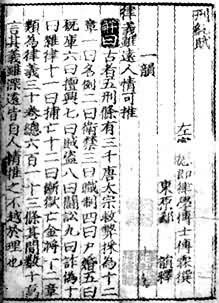 刑統賦
左宣德郎律學博士傅霖撰
東原郄□韻釋
一韻
律義雖遠人情可推
解曰古者五刑條有三千唐太宗敕撰為十二
章一名例二曰衛禁三曰職制四曰戶婚五曰
廐庫六曰擅興七曰賊盜八曰鬪訟九曰詐偽十
曰雜律十一曰捕亡十二曰斷獄亡金將十二章
類為律義三十卷總六百一十三條其間數十萬
言其義雖深遠皆自人情推之不越於理也